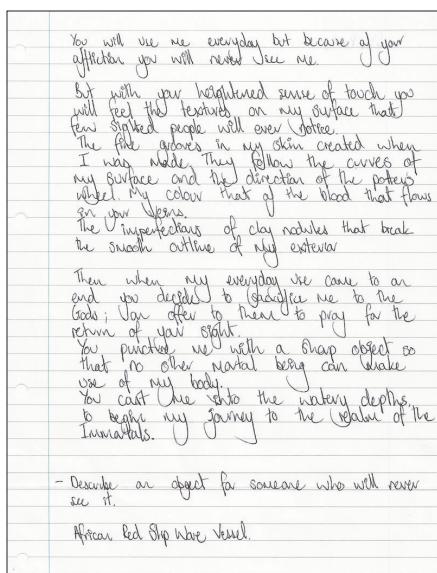 You will use me everyday but because of your
affliction you will never see me.
But with your heightened sense of touch you
will feel the textures on my surface that
few sighted people will ever notice.
The fine grooves in my skin created when
I was made. They follow the curves of
my surface and the direction of the potters
wheel. My colour that of the blood that flows
in your veins.
The imperfections of clay nodules that break
the smooth outline of my exterior
Then when my everyday use came to an
end you decided to sacrifice me to the
Gods; an offer to them to pray for the
return of your sight.
You punctured me with a sharp object so
that no other mortal being can make
use of my body.
You cast me into the watery depths,
to begin my journey to the realm of the
Immortals.
- Describe an object for someone who will never
see it.
African Red Slip Ware Vessel.